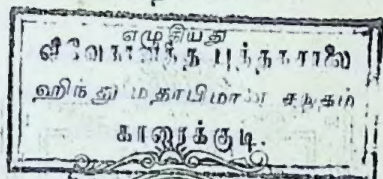 எழுதியது
விவேகானந்த புத்தகசாலை
ஹிந்து மதாபிமான சங்கம்
காரைக்குடி.